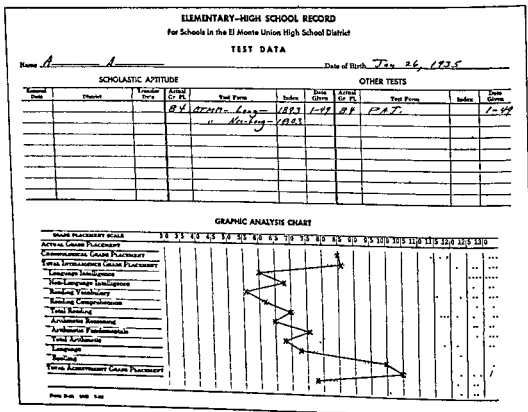 ELEMENTARY–HIGH SCHOOL RECORD
For Schools in the El Monte Union High School District
TEST DATA
Name A A Date of Birth Jan 26, 1935
SCHOLASTIC APTITUDE OTHER TESTS
District Transfer Actual Gr Pl. Test Form Index Date Given Actual Gr Pl. Test Form Index Date Given
B4 CTMM - Lang - 1-49 B4 P.A.T. 1-49
" Non-Lang -
GRAPHIC ANALYSIS CHART
GRADE PLACEMENT SCALE 3 0 3 5 4 0 4 5 5 0 5 5 6 0 6 5 7 0 7 5 8 0 8 5 9 0 9 5 10 0 10 5 11 0 11 5 12 0 12 5 13 0
ACTUAL GRADE PLACEMENT
CHRONOLOGICAL GRADE PLACEMENT
TOTAL INTELLIGENCE GRADE PLACEMENT
Language Intelligence
Non-Language Intelligence
Reading Vocabulary
Reading Comprehension
Total Reading
Arithmetic Reasoning
Arithmetic Fundamentals
Total Arithmetic
Language
Spelling
TOTAL ACHIEVEMENT GRADE PLACEMENT